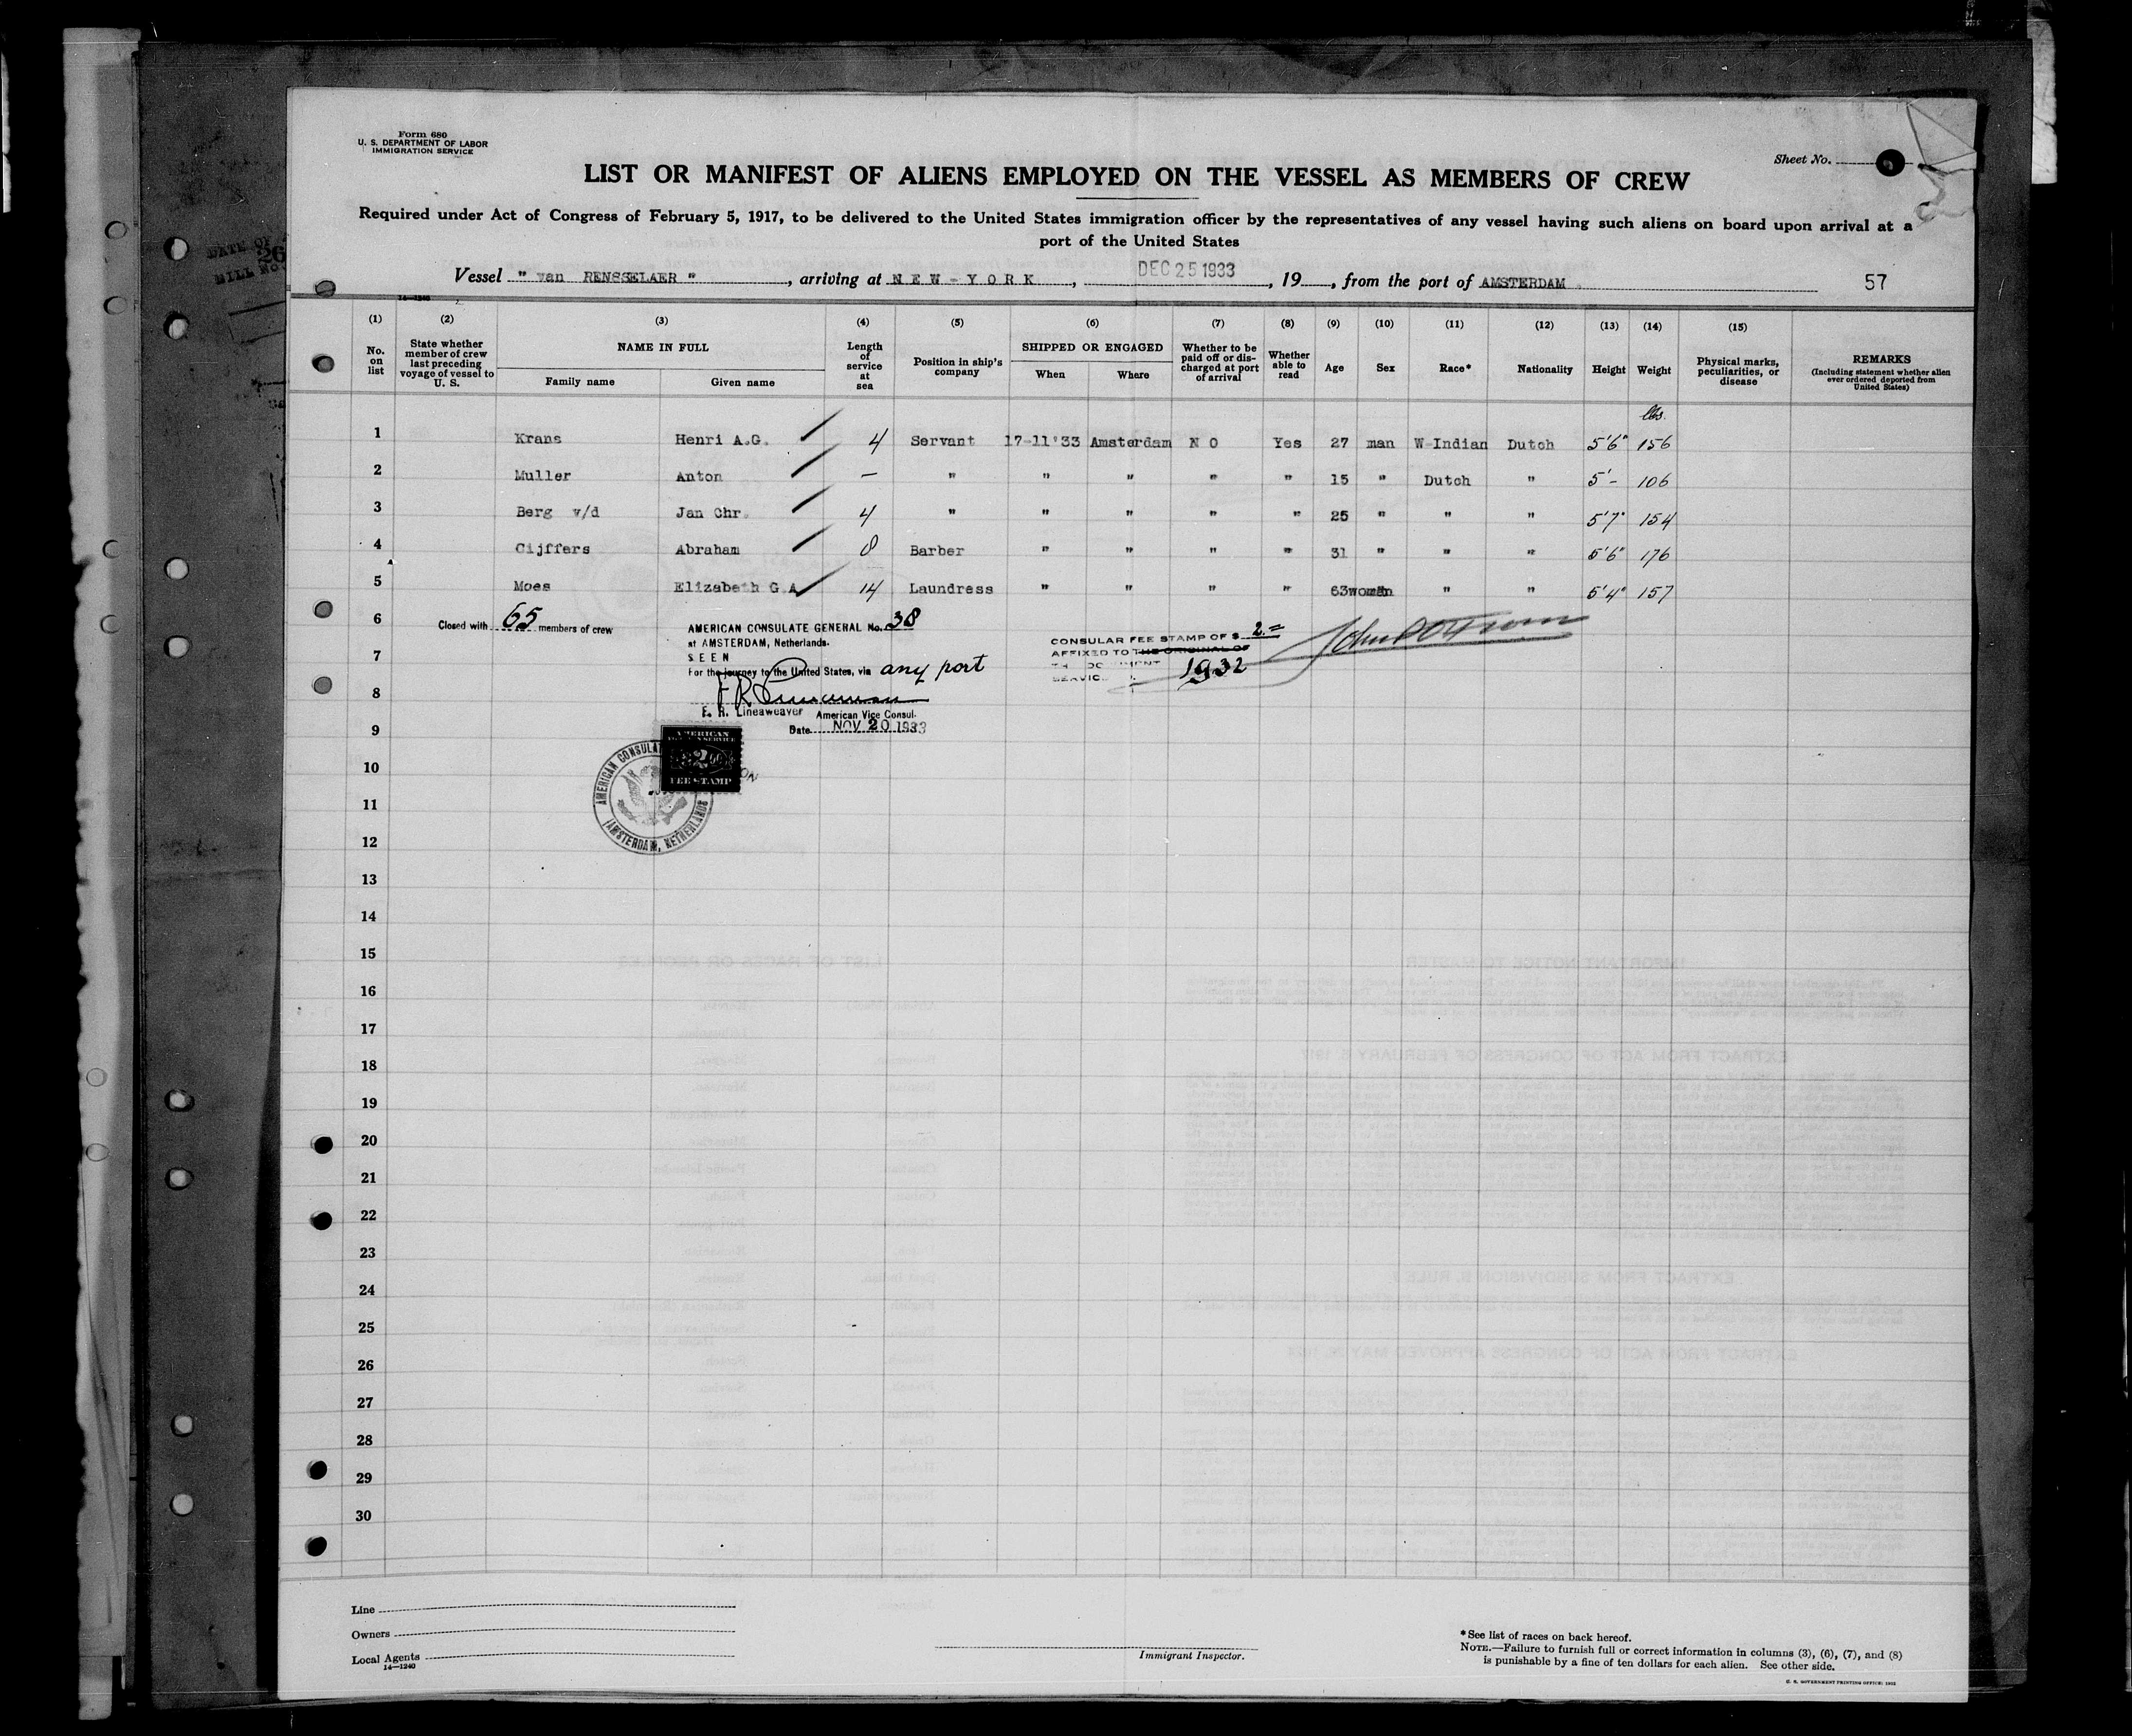 Form 680
U. S. DEPARTMENT OF LABOR
IMMIGRATION SERVICE
Sheet No.
LIST OR MANIFEST OF ALIENS EMPLOYED ON THE VESSEL AS MEMBERS OF CREW
Required under Act of Congress of February 5, 1917, to be delivered to the United States immigration officer by the representatives of any vessel having such aliens on board upon arrival at a
port of the United States
Vessel " van RENSSELAER ", arriving at NEW-YORK, DEC 25 1933, 19, from the port of AMSTERDAM. 57
14-1240
(1) (2) (3) (4) (5) (6) (7) (8) (9) (10) (11) (12) (13) (14) (15)
No. on list
State whether member of crew last preceding voyage of vessel to U. S.
NAME IN FULL
Family name
Given name
Length of service at sea
Position in ship's company
SHIPPED OR ENGAGED
When
Where
Whether to be paid off or discharged at port of arrival
Whether able to read
Age
Sex
Race*
Nationality
Height
Weight
Physical marks, peculiarities, or disease
REMARKS
(Including statement whether alien ever ordered deported from United States)
lbs.
1 Krans Henri A.G. 4 Servant 17-11'33 Amsterdam N O Yes 27 man W-Indian Dutch 5'6" 156
2 Muller Anton — " " " " " 15 " Dutch " 5'- 106
3 Berg v/d Jan Chr. 4 " " " " " 25 " " " 5'7" 154
4 Cijffers Abraham 8 Barber " " " " 31 " " " 5'6" 176
5 Moes Elizabeth G.A. 14 Laundress " " " " 63 woman " " 5'4" 157
6
Closed with 65 members of crew
AMERICAN CONSULATE GENERAL No. 38
at AMSTERDAM, Netherlands.
SEEN
For the journey to the United States, via any port
E. R. Lineaweaver American Vice Consul.
Date NOV 20 1933
CONSULAR FEE STAMP OF $ 2.=
AFFIXED TO THE ORIGINAL OF
1932
AMERICAN
FEE STAMP
AMERICAN CONSULATE
AMSTERDAM, NETHERLANDS
7
8
9
10
11
12
13
14
15
16
17
18
19
20
21
22
23
24
25
26
27
28
29
30
Line
Owners
Local Agents
14-1240
Immigrant Inspector.
*See list of races on back hereof.
NOTE.—Failure to furnish full or correct information in columns (3), (6), (7), and (8)
is punishable by a fine of ten dollars for each alien. See other side.
U. S. GOVERNMENT PRINTING OFFICE: 1932